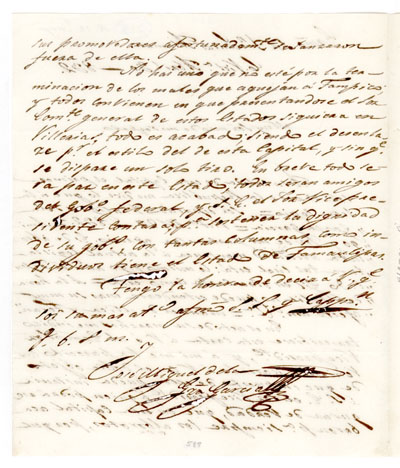 sus promovedores afortunadamte. se lanzaron
fuera de ella.
No hai uno que no esté por la ter-
minacion de los males que aquejan á Tampico,
y todos convienen en que presentandose el Sor.
Comte. general de estos Estados siquiera en
Villerias, todo es acabado, siendo el desenla-
ze pr. el estilo del de esta Capital, y sin qe.
se dispare un solo tiro. En breve todo se-
rá paz en este Estado, todos seran amigos
del Gobo. federal, y S. E. el Sor. Vicepre-
sidente contará pa. sostener la dignidad
de su gobo. con tantas columnas, como in-
dividuos tiene el Estado de Tamaulipas.
Tengo la honra de decirme de V. qe.
los mas at. afmo. S. S. q.
q. b. s. m.
José Miguel de la
Gza. Garcia